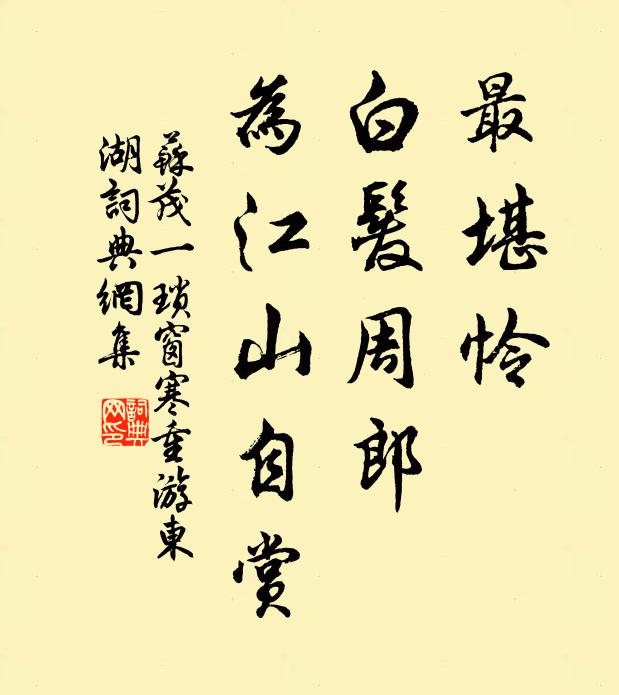 最堪怜
白髮周郎
為江山自赏
蘇茂一瑣窗寒重游東
湖詞典網集
詞典
网印